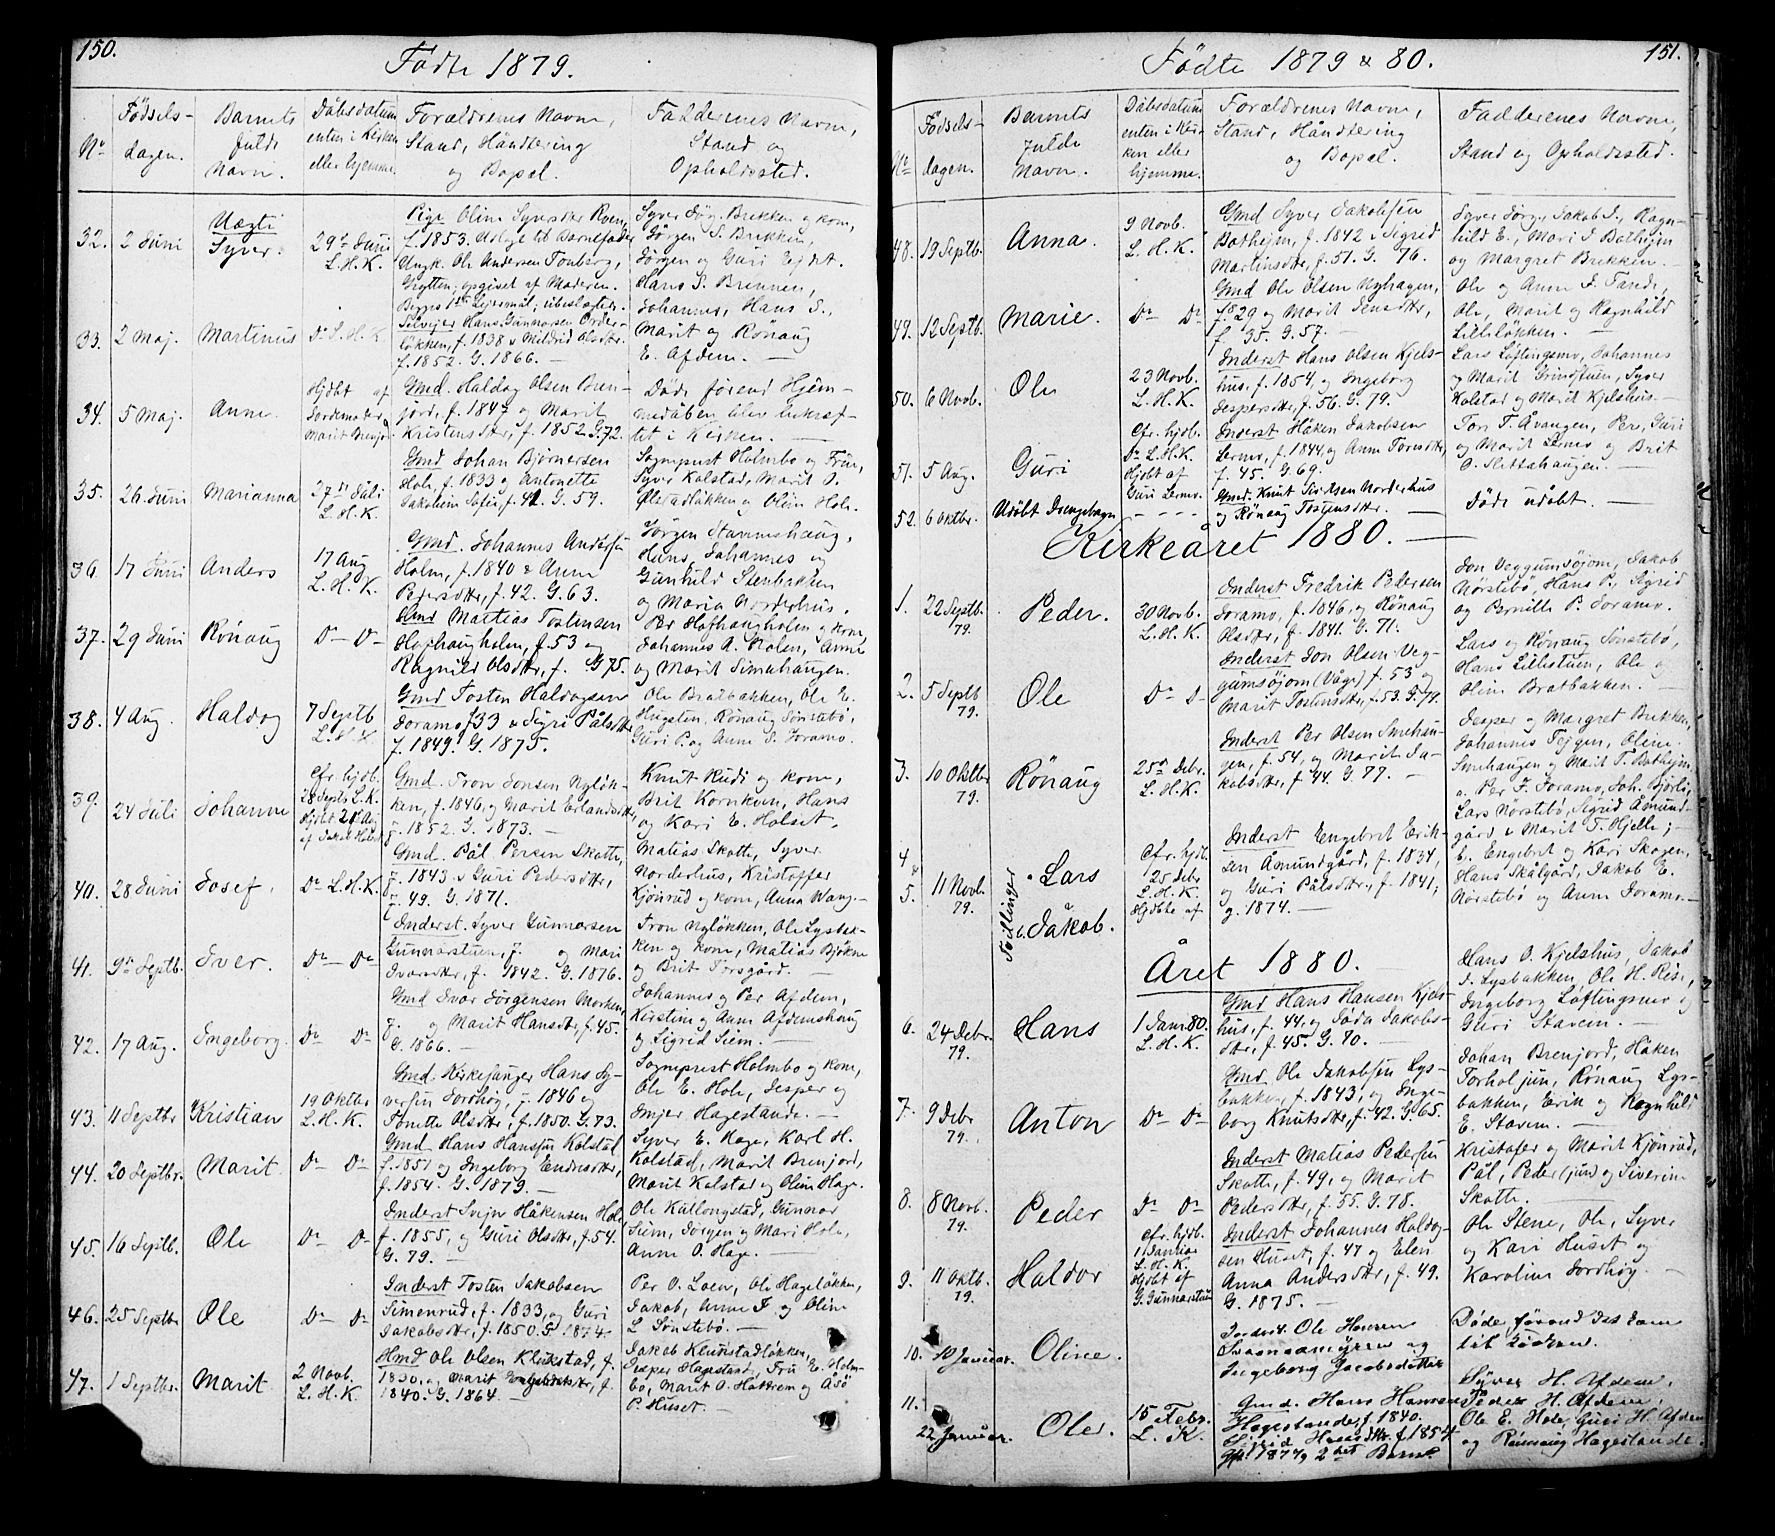 150.
Födte 1879.
No
Födsels-
dagen.
Barnets
fulde
Navn.
Dåbsdatum
enten i Kirken
eller hjemme.
Forældrenes Navne,
Stand, Håndtering
og Bopæl.
Faddernes Navne,
Stand og
Opholdssted.
32. 2 Juni
Uægti
Syver.
29de Juni
L. H. K.
Pige Oline Syversdtr
f. 1853. Udlagt til Barnefader
Ungk. Ole Andersen
opgivet af Moderen.
Syver Jörg. Brekken og kone,
Jörgen S. Brekken,
Jörgen og Guri Ejdet.
Hans S. Brennen,
33. 2 Maj. Martinus Do L. H. K.
Selvejer Hans Gunnarsen
løkken, f. 1838 & Mildrid Olsdtr.
f. 1852. G. 1866. —
Johannes, Hans S.,
Marit og Rönaug
E. Afdem. —
34. 5 Maj. Anne
Hjdbt af
Jordemoder
Marit Brenjord
Gmd. Haldog Olsen Bren-
jord, f. 1847 og Marit
Kristensdtr, f. 1852. G. 72.
Döde förend Hjem-
medåben blev bekræf-
tet i Kirken. —
35. 26 Juni Marianna
27de Juli
L. H. K.
Gmd Johan Björnersen
Hole, f. 1833 og Antonette
Jakobine Sofie, f. 42. G. 59.
Sogneprest Holmbo og Frue,
Syver Kolstad, Marit O.
og Olim Hole.
36. 17 Juni Anders
17 Aug
L. H. K.
Gmd. Johannes Andersen
Holm, f. 1840 & Anne
Pedersdtr, f. 42. G. 63.
Jörgen Stavnshaug,
Hans, Johannes og
Gunhild Stenbakken
og Maria Norderhus.
37. 29 Juni Rönaug Do Do
Gmd Mattias Tostensen
Hofhaugholen, f. 53 og
Ragnild Olsdtr, f. G 75.
Per Hofhaugholen og kone,
Johannes A. Holen, Anne
og Marit Simahaugen.
38. 4 Aug. Haldog
7 Septb
L. H. K
Gmd Tosten Haldogsen
Joramo f 33 & Sigri Pålsdtr
f. 1849. G. 1875.
Ole Bratbakken, Ole E.
Hugsten, Rönaug Sönstebö,
Guri P. og Anne S. Joramo.
39. 24 Juli Johanne
Cfr. hjdb.
28 Septb L. K.
Hjdbt 21 Aug
af Jakob
Gmd. Tron Jonsen Nyløk-
ken, f. 1846, og Marit Erlandsdtr,
f. 1852. G. 1873. —
Knut Rudi og kone,
Brit Kornkven, Hans
og Kari E. Holset.
40. 28 Juni Josef. Do L. H. K.
Gmd. Pål Persen Skotte,
f. 1843 & Guri Pedersdtr,
f. 49. G. 1871.
Matias Skotte, Syver
Norderhus, Kristoffer
Kjönrud og kone, Anna Wang.—
41. 9de Septb. Iver. Do Do
Inderst. Syver Gunnarsen
Gunnarstuen, f. og Mari
Ivarsdtr, f. 1842. G. 1876.
Tron Nyløkken, Ole Lysbak-
ken og kone, Matias Bjökne
og Brit Forsgård. —
42. 17 Aug. Ingeborg. Do Do
Gmd Ivar Jörgensen Morken,
f. og Marit Hansdtr, f. 45.
G. 1866. —
Johannes og Per Afdem,
Kirstine og Anne Afdemshaug
og Sigrid Siem. —
43. 11 Septbr Kristian
19 Oktbr
L. H. K.
Gmd. Kirkesanger Hans Sy-
versen Jordhöy, f. 1846 og
Tonette Olsdtr, f. 1850. G. 73.
Sogneprest Holmbo og kone,
Ole E. Hole, Jesper og
Inger Hagestande. —
44. 20 Septbr. Marit. Do Do
Gmd Hans Hansen Kolstad
f. 1851 og Ingeborg Endresdtr,
f. 1854. G. 1879. —
Syver E. Hage, Karl H.
Kolstad, Marit Brenjord,
Marit Kolstad og Oline Hage.
45. 16 Septb. Ole Do Do
Inderst Svejn Håkensen Hole,
f. 1855, og Guri Olsdtr, f. 54.
G. 79. —
Ole Kållongstad, Gunnar
Siem, Jörgen og Mari Hole,
Anne O. Hage. —
46. 25 Septbr Ole Do Do
Inderst Tosten Jakobsen
Simenrud, f. 1833, og Guri
Jakobsdtr, f. 1850. G 1874.
Per O. Loen, Ole Hageløkken,
Jakob, Anne F og Oline
L Sönstebö. —
47. 1 Septbr. Marit.
2 Novb.
L. H. K.
Hmd Ole Olsen Klukstad, f.
1830, og Marit Engebretsdtr, f.
1840. G. 1864. —
Jakob Klukstadløkken,
Jesper Hagestad, Fru E. Holm-
bo, Marit O. Håttrem og Åsö
P. Huset. —
151.
Födte 1879 & 80.
No
Födsels-
dagen.
Barnets
fulde
Navn.
Dåbsdatum
enten i Kir-
ken eller
hjemme.
Forældrenes Navne,
Stand, Håndtering
og Bopæl.
Faddernes Navne,
Stand og Opholdssted.
48. 19 Septb. Anna.
9 Novb.
L. H. K.
Gmd Syver Jakobsen
Botheim, f. 1842 & Sigrid
Martinsdtr, f. 51. G. 76.
Syver Jörg., Jakob J., Ragn-
hild E., Mari J Botheim
og Margret Brekken. —
49. 12 Septb. Marie. Do Do
Gmd Ole Olsen Nyhagen,
f. 29 og Marit Jensdtr,
f 35. G. 57. —
Ole og Anne J. Tande,
Ole, Marit og Ragnhild
Lilleløkken. —
50. 6 Novb. Ole
23 Novb.
L. H. K.
Inderst Hans Olsen Kjels-
hus, f. 1854, og Ingeborg
Jespersdtr, f. 56. G. 79.
Lars Løftingsmo, Johannes
og Marit Grindstuen, Syver
Kolstad og Marit Kjelshus.—
51. 5 Aug. Guri
Cfr. hjdb.
Do L. H. K.
Hjdbt af
Guri Lermo.
Inderst Håken Jakobsen
Lermo, f. 1844 og Anne Toresdtr,
f. 45. G. 69. —
Tore T. Avangen, Per, Guri
og Marit Lermo og Brit
O. Slettahaugen. —
52. 6 Oktbr. Udöbt Drengebarn - - - -
Gmd. Knut Norderhus
og Rönaug Tostensdtr. —
Döde udöbt. —
Kirkeåret 1880. —
1. 22 Septb.
79.
Peder.
30 Novb.
L. H. K.
Inderst Fredrik Pedersen
Joramo, f. 1846, og Rönaug
Olsdtr, f. 1841. G. 71.
Jon Veggumsøjom, Jakob
Nörstebö, Hans P., Sigrid
og Pernille P. Joramo.
2. 5 Septb
79.
Ole Do D
Inderst Jon Olsen Veg-
gumsøjom (Våge) f. 53 og
Marit Tostensdtr, f. 53. G. 79.
Lars og Rönaug Sönstebö,
Hans Lillestuen, Ole og
Oline Bratbakken.
3. 10 Oktbr
79.
Rönaug
25de Debr.
L. H. K.
Inderst Per Olsen Smehau-
gen, f. 54, og Marit Ja-
kobsdtr, f. 44. G. 77. —
Jesper og Margret Brekken,
Johannes Tejgen, Oline
Smehaugen og Marit T. Botheim
4
&
5. 11 Novb.
79.
Tvillinger
a. Lars
b. Jakob.
Cfr. hjdb.
25 Debr
L. H. K.
Hjdbte af
Inderst Engebret Erik-
sen Åmundgård, f. 1834,
og Guri Pålsdtr, f. 1841,
g. 1874. —
a. Per F. Joramo, Joh. Bjorli,
Lars Nörstebö, Sigrid Åmund-
gård & Marit T. Hjelle; —
b. Engebret og Kari Skogen,
Hans Skålgård, Jakob E.
Nörstebö og Anne Joramo.—
Året 1880.
6. 24 Debr
79.
Hans
1 Janr 80.
L. H. K.
Gmd Hans Hansen Kjels-
hus, f. 44, og Jøda Jakobs-
dtr, f. 45. G. 70. —
Hans O. Kjelshus, Jakob
J. Lysbakken, Ole H. Rise,
Ingeborg Løftingsmo og
Guri Stavem. —
7. 9 Debr
79.
Anton Do Do
Gmd Ole Jakobsen Lys-
bakken, f. 1843, og Inge-
borg Knutsdtr, f. 42. G. 65.
Johan Brenjord, Håken
Torholjun, Rönaug Lys-
bakken, Erik og Ragnhild
E. Stavem. —
8. 8 Novb.
79.
Peder Do Do
Inderst Matias Pedersen
Skotte, f. 49, og Marit
Pedersdtr, f. 55. G. 78.
Kristofer og Marit Kjönrud,
Pål, Peder (jun) og Siverin
Skotte. —
9. 11 Oktb.
79.
Haldor
Cfr. hjdb.
1 Januar
L. H. K.
Hjdbt af
G. Gunnarstuen
Inderst Johannes Haldog-
sen Huset, f. 47 og Elen
Anna Andersdtr, f. 49.
G. 1875. —
Ole Stene, Ole, Syver
og Kari Huset og
Karoline Jordhöy. —
10. 10 Januar. Oline.
Inderst. Ole Hansen
og
Ingeborg Jacobsdatter
Döde förend det kom
til Kirken.
11. 22 Januar. Oler.
15 Febr.
L. K.
Gmd. Hans Hansen
Hagestande, f. 1840.
Sigrid Hansdtr. f 1854
Gft. 1877, 2det Barn.
Syver H. Afdem,
Peder H. Afdem,
Ole E. Hole, Guri H. Afdem
og Rönnaug Hagestande.